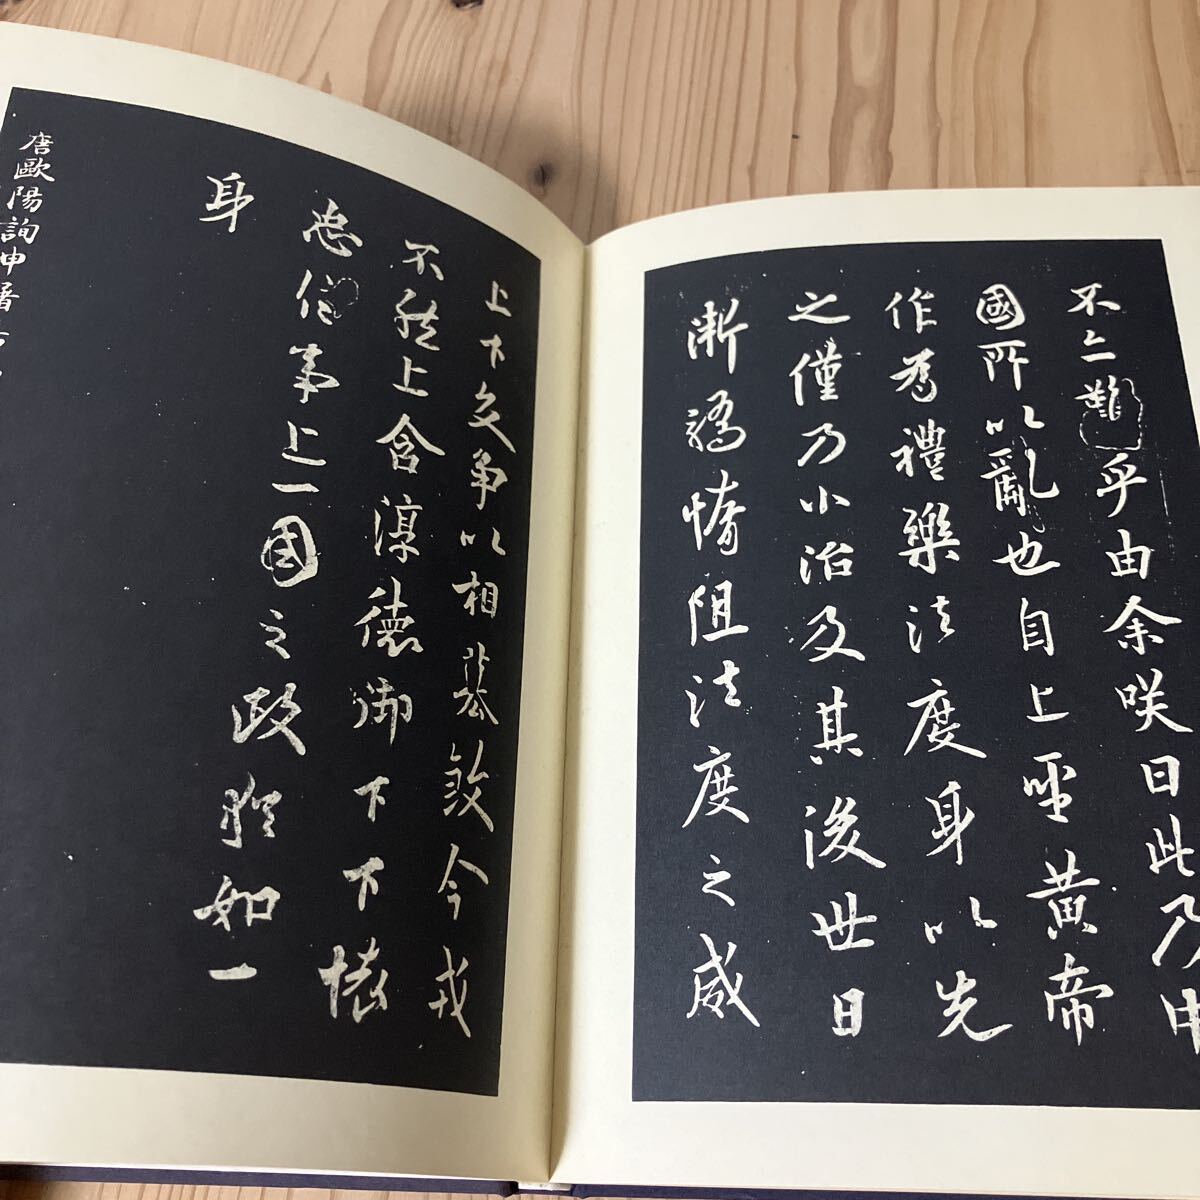 不亦難乎由余咲曰此乃中
國所以亂也自上聖黃帝
作為禮樂法度身以先
之僅乃小治及其後世日
漸驕惰阻法度之威
上下交爭以相墓敓今戎
不然上含淳德御下下懷
忠信事上一國之政猶如一
身
唐歐陽詢申屠